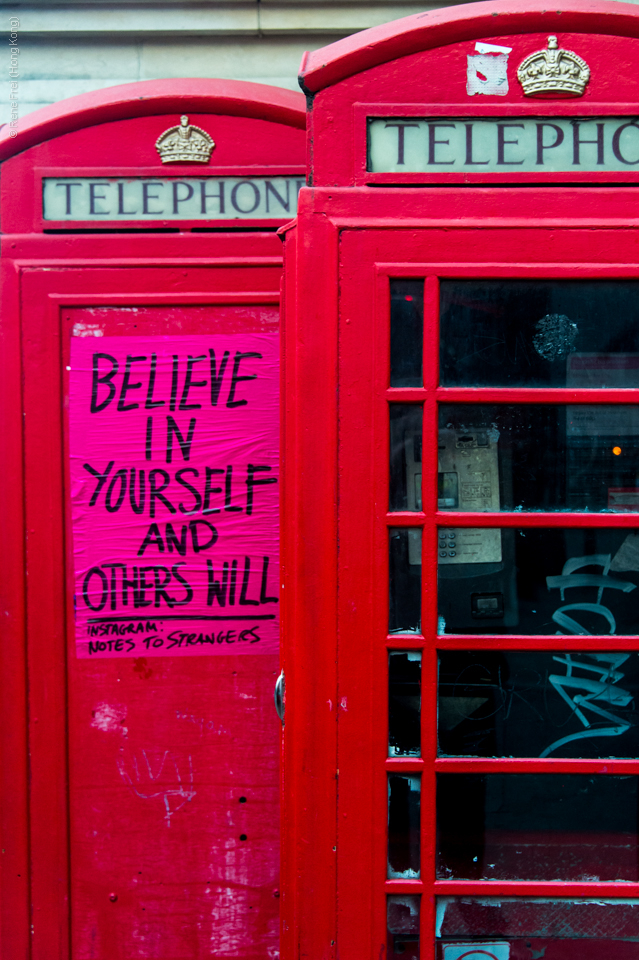 © Rene Frei (Hong Kong)
TELEPHON
TELEPHO
BELIEVE
IN
YOURSELF
AND
OTHERS WILL
INSTAGRAM:
NOTES TO STRANGERS